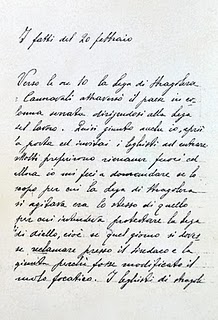 I fatti del 20 febbraio
Verso le ore 10 la Lega di Stragolara
Cannavati attraversò il paese in co
lonna serrata dirigendosi alla Lega
del lavoro. Quivi giunto anche io, aprii
la porta ed invitai i leghisti ad entrare
Molti preferirono rimaner fuori ed
allora io mi feci a domandare se lo
scopo per cui la Lega di
si agitava era lo stesso di quello
per cui intendeva protestare la lega
di diello, cioè se quel giorno si dove
se reclamare presso il sindaco e la
giunta perchè fosse modificato il
ruolo focatico. I leghisti di